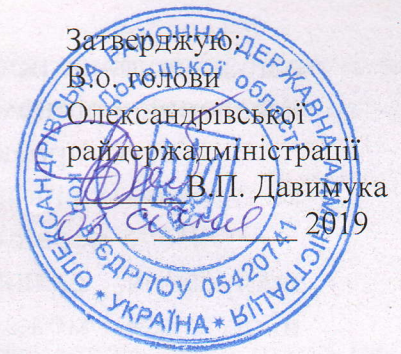 Затверджую:
В.о. голови
Олександрівської
райдержадміністрації
________ В.П. Давимука
03 січня 2019
ОЛЕКСАНДРІВСЬКА РАЙОННА ДЕРЖАВНА АДМІНІСТРАЦІЯ * УКРАЇНА *
Донецької області
код ЄДРПОУ 05420741